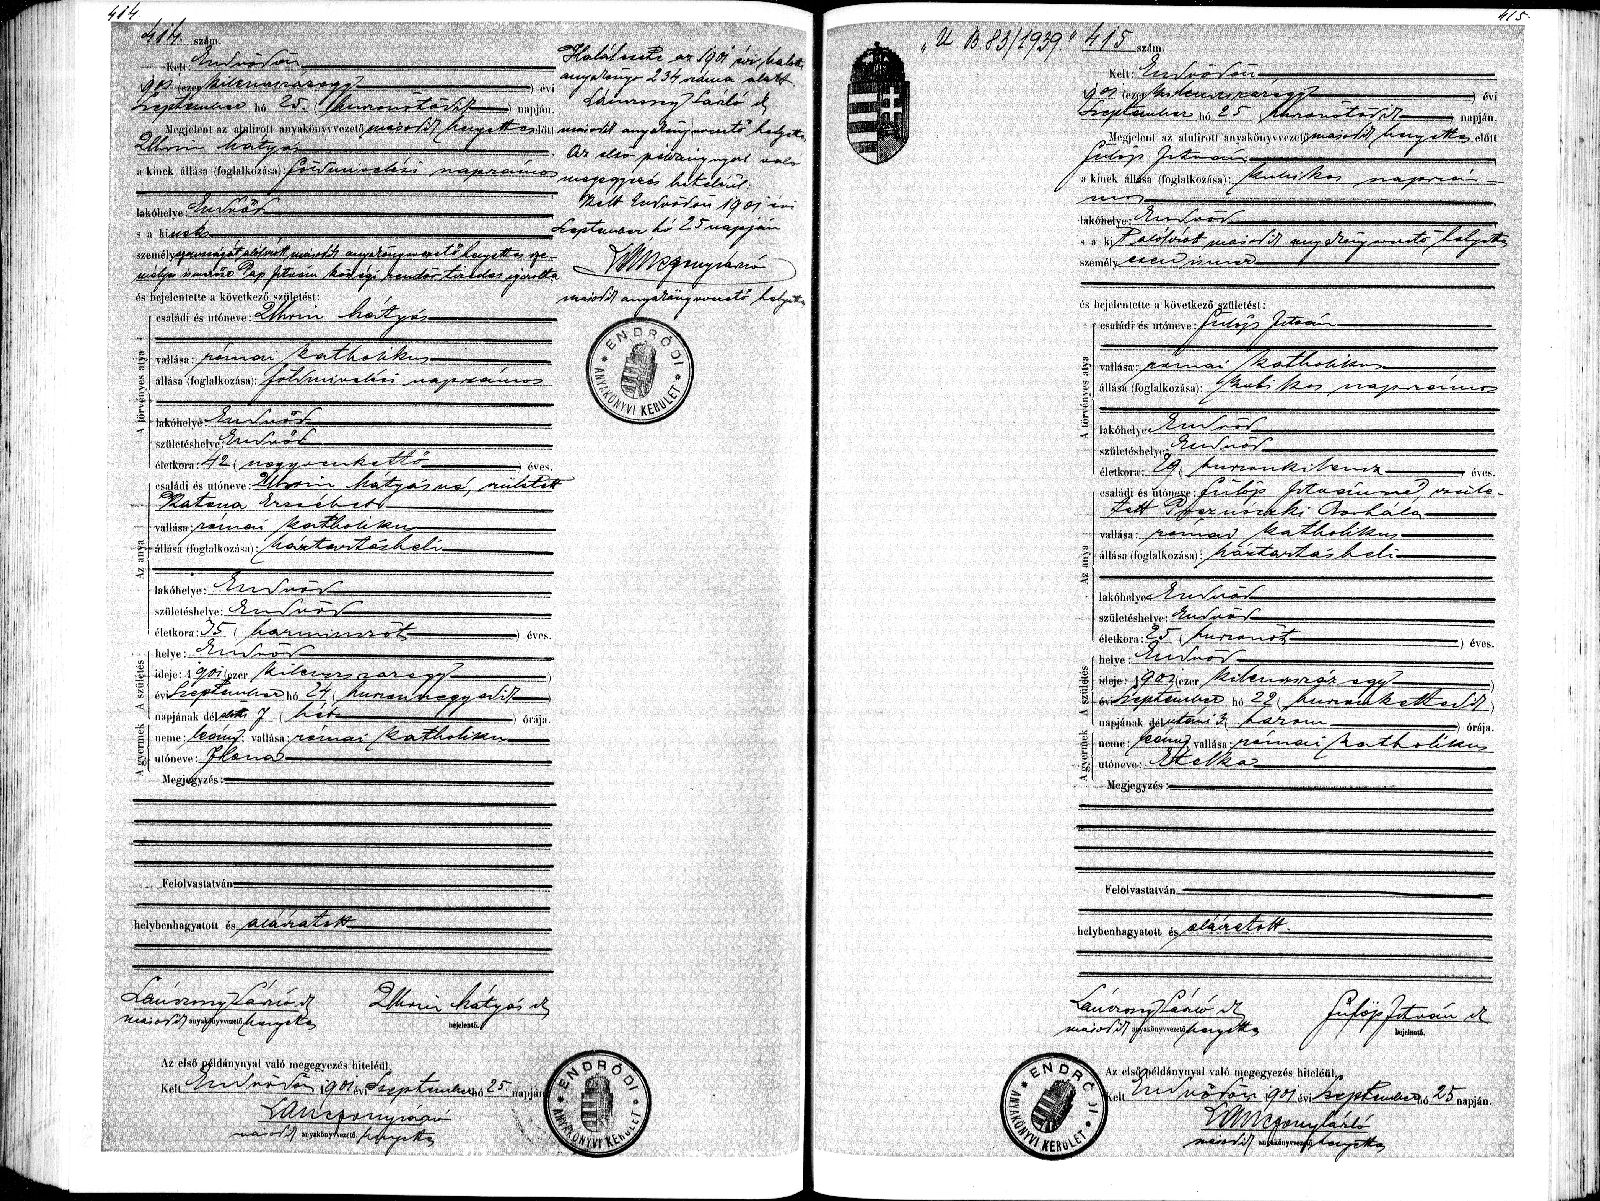 414
414. szám.
Kelt Endrődön
901 (ezer kilenczszázegy) évi
Szeptember hó 25. (huszonötödik) napján.
Megjelent az alulirott anyakönyvvezető második helyettes előtt
Uhrin Mátyás
a kinek állása (foglalkozása): földmivelési napszámos
lakóhelye: Endrőd
s a kinek
személyazonosságát alulirott második anyakönyvvezető helyettes
Pap István községi rendőr igazolta
és bejelentette a következő születést:
A törvényes atya
családi és utóneve: Uhrin Mátyás
vallása: római katholikus
állása (foglalkozása): földmivelési napszámos
lakóhelye: Endrőd
születéshelye: Endrőd
életkora: 42 (negyvenkettő) éves.
Az anya
családi és utóneve: Uhrin Mátyásné, született
Katona Erzsébet
vallása: római katholikus
állása (foglalkozása): háztartásbeli
lakóhelye: Endrőd
születéshelye: Endrőd
életkora: 35 (harminczöt) éves.
A születés
helye: Endrőd
ideje: 1901 (ezer kilenczszázegy)
évi Szeptember hó 24 (huszonnegyedik)
napjának délelőtti 7 (hét) órája.
A gyermek
neme: leány; vallása: római katholikus
utóneve: Ilona
Megjegyzés:
Felolvastatván
helybenhagyatott és aláiratott
Lánczony László sk
második anyakönyvvezető helyettes
Uhrin Mátyás sk
bejelentő.
Az első példánynyal való megegyezés hiteléül.
Kelt Endrődön 1901 évi Szeptember hó 25 napján
Lánczony László
második anyakönyvvezető helyettes
ENDRŐDI
ANYAKÖNYVI KERÜLET
Halálesete az 1901 évi halotti
anyakönyv 234 száma alatt
Lánczony László sk
második anyakönyvvezető helyettes
Az első példánynyal való
megegyezés hiteléül.
Kelt Endrődön 1901 évi
Szeptember hó 25 napján
Lánczony László
második anyakönyvvezető helyettes
ENDRŐDI
ANYAKÖNYVI KERÜLET
415.
"U B.83/1939" 415 szám.
Kelt Endrődön,
901 (ezer kilenczszázegy) évi
Szeptember hó 25 (huszonötödik) napján.
Megjelent az alulirott anyakönyvvezető második helyettes előtt
Fülöp István
a kinek állása (foglalkozása): kubikos napszá-
mos
lakóhelye: Endrőd
s a ki alulirott második anyakönyvvezető helyettes
személyesen ismer
és bejelentette a következő születést:
A törvényes atya
családi és utóneve: Fülöp István
vallása: római katholikus
állása (foglalkozása): kubikos napszámos
lakóhelye: Endrőd
születéshelye: Endrőd
életkora: 29 (huszonkilencz) éves.
Az anya
családi és utóneve: Fülöp Istvánné, szüle-
tett Borbála
vallása: római katholikus
állása (foglalkozása): háztartásbeli
lakóhelye: Endrőd
születéshelye: Endrőd
életkora: 25 (huszonöt) éves.
A születés
helye: Endrőd
ideje: 1901 (ezer kilenczszáz egy)
évi Szeptember hó 22 (huszonkettedik)
napjának délutáni 3 (három) órája.
A gyermek
neme: leány vallása: római katholikus
utóneve: Etelka
Megjegyzés:
Felolvastatván
helybenhagyatott és aláiratott.
Lánczony László sk
második anyakönyvvezető helyettes
Fülöp István sk
bejelentő.
Az első példánynyal való megegyezés hiteléül,
Kelt Endrődön 901 évi Szeptember hó 25 napján.
Lánczony László
második anyakönyvvezető helyettes
ENDRŐDI
ANYAKÖNYVI KERÜLET